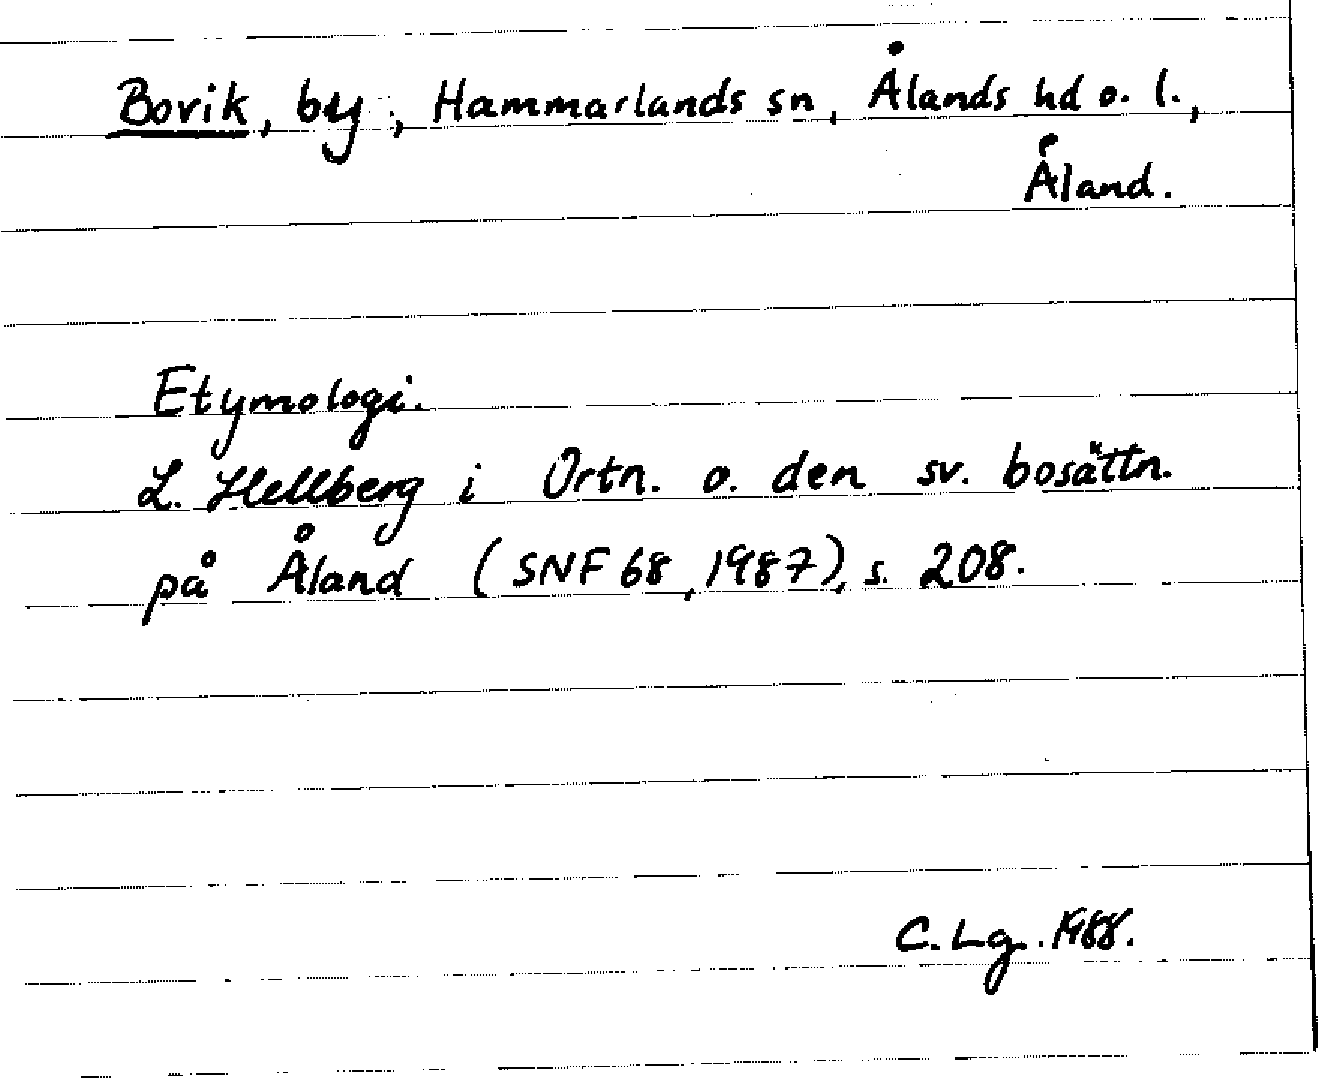 Bovik, by, Hammarlands sn, Ålands hd o. l.,
Åland.
Etymologi.
L. Hellberg i Ortn. o. den sv. bosättn.
på Åland (SNF 68, 1987), s. 208.
C. Lg. 1988.